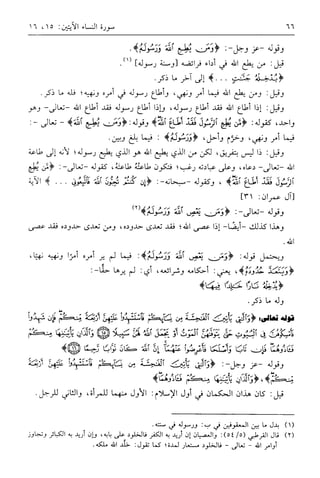 ٦٦ سورة النساء الآيتين: ١٥، ١٦
وقوله -عز وجل-: ﴿وَمَن يُطِعِ اللَّهَ وَرَسُولَهُ﴾.
قيل: من يطع الله في أداء فرائضه [وسنة رسوله] (١).
﴿يُدْخِلْهُ جَنَّاتٍ . . .﴾ إلى آخر ما ذكر.
وقيل: ومن يطع الله فيما أمر ونهى، وأطاع رسوله في أمره ونهيه؛ فله ما ذكر.
وقيل: إذا أطاع الله فقد أطاع رسوله، وإذا أطاع رسوله فقد أطاع الله -تعالى- وهو
واحد، كقوله: ﴿مَّن يُطِعِ الرَّسُولَ فَقَدْ أَطَاعَ اللَّهَ﴾ وقوله: ﴿وَمَن يُطِعِ اللَّهَ﴾ - تعالى -:
فيما أمر ونهى، وحرَّم وأحل، ﴿وَرَسُولَهُ﴾ : فيما بلغ وبين.
وقيل: ذا ليس بتفريق، لكن من الذي يطيع الله هو الذي يطيع رسوله؛ لأنه إلى طاعة
الله -تعالى- دعاه، وعلى عبادته رغب؛ فتكون طاعتُهُ طاعتَهُ، كقوله -تعالى-: ﴿مَّن يُطِعِ
الرَّسُولَ فَقَدْ أَطَاعَ اللَّهَ﴾ ، وكقوله -سبحانه-: ﴿إِن كُنتُمْ تُحِبُّونَ اللَّهَ فَاتَّبِعُونِي . . .﴾ الآية
[آل عمران: ٣١]
وقوله -تعالى-: ﴿وَمَن يَعْصِ اللَّهَ وَرَسُولَهُ﴾
وهذا كذلك -أيضًا- إذا عصى الله؛ فقد تعدى حدوده، ومن تعدى حدوده فقد عصى
الله.
ويحتمل قوله: ﴿وَمَن يَعْصِ اللَّهَ وَرَسُولَهُ﴾: فيما لم ير أمره أمرًا ونهيه نهيًا،
﴿وَيَتَعَدَّ حُدُودَهُ﴾، يعني: أحكامه وشرائعه، أي: لم يرها حقًّا-:
﴿يُدْخِلْهُ نَارًا خَالِدًا فِيهَا﴾
وله ما ذكر.
قوله تعالى: ﴿وَاللَّاتِي يَأْتِينَ الْفَاحِشَةَ مِن نِّسَائِكُمْ فَاسْتَشْهِدُوا عَلَيْهِنَّ أَرْبَعَةً مِّنكُمْ فَإِن شَهِدُوا
فَأَمْسِكُوهُنَّ فِي الْبُيُوتِ حَتَّىٰ يَتَوَفَّاهُنَّ الْمَوْتُ أَوْ يَجْعَلَ اللَّهُ لَهُنَّ سَبِيلًا ۝١٥ وَاللَّذَانِ يَأْتِيَانِهَا مِنكُمْ
فَآذُوهُمَا فَإِن تَابَا وَأَصْلَحَا فَأَعْرِضُوا عَنْهُمَا إِنَّ اللَّهَ كَانَ تَوَّابًا رَّحِيمًا ۝١٦﴾
وقوله -عز وجل-: ﴿وَاللَّاتِي يَأْتِينَ الْفَاحِشَةَ مِن نِّسَائِكُمْ فَاسْتَشْهِدُوا عَلَيْهِنَّ أَرْبَعَةً
مِّنكُمْ﴾، ﴿وَاللَّذَانِ يَأْتِيَانِهَا مِنكُمْ فَآذُوهُمَا﴾
قيل: كان هذان الحكمان في أول الإسلام: الأول منهما للمرأة، والثاني للرجل.
(١) بدل ما بين المعقوفين في ب: ورسوله في سنته.
(٢) قال القرطبي (٥/٥٤): والعصيان إن أريد به الكفر فالخلود على بابه، وإن أريد به الكبائر وتجاوز
أوامر الله - تعالى - فالخلود مستعار لمدة؛ كما تقول: خلَّد الله ملكه.